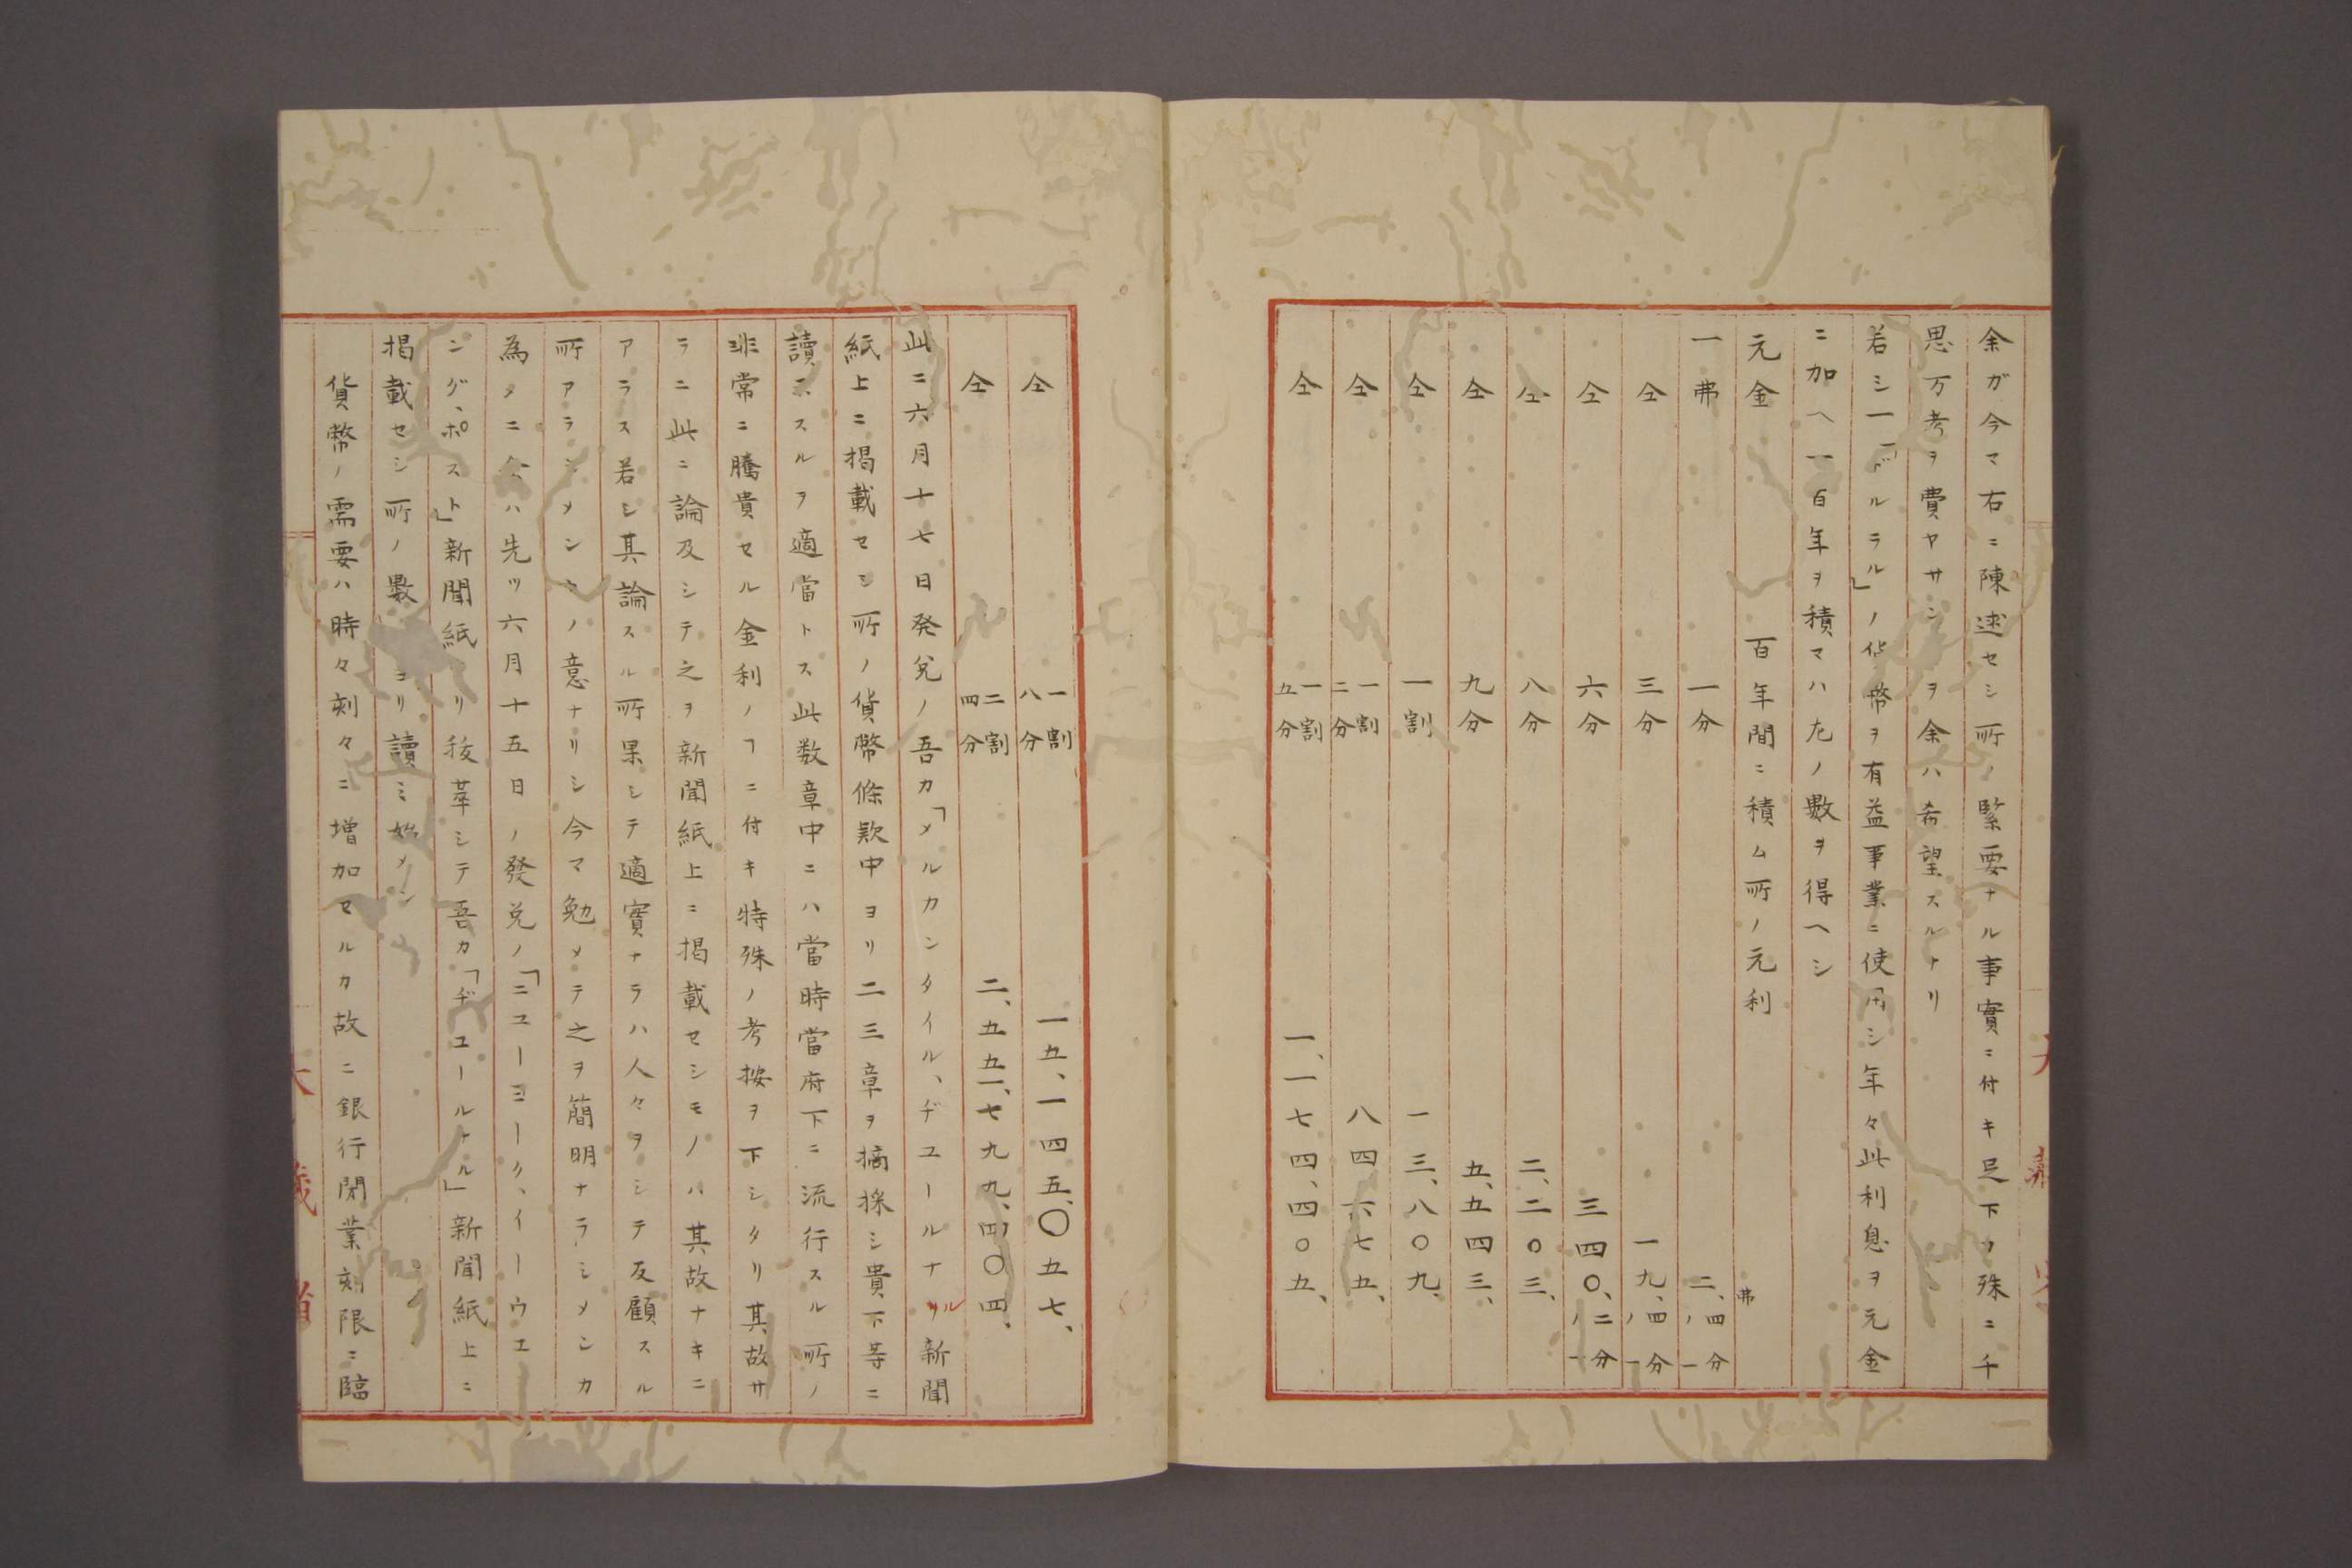 余ガ今マ右ニ陳述セシ所ノ緊要ナル事實ニ付キ足下ノ殊ニ千
思万考ヲ費ヤサンヲ余ハ希望スルナリ
若シ一「ドルラル」ノ貨幣ヲ有益事業ニ使用シ年々此利息ヲ元金
ニ加ヘ一百年ヲ積マハ左ノ數ヲ得ヘシ
元金 百年間ニ積ム所ノ元利
弗
一弗 一分 二、四分ノ一
仝 三分 一九、四分ノ一
仝 六分 三四〇、二分ノ一
仝 八分 二、二〇三、
仝 九分 五、五四三、
仝 一割 一三、八〇九、
仝 一割二分 八四、六七五、
仝 一割五分 一、一七四、四〇五、
仝 一割八分 一五、一四五、〇五七、
仝 二割四分 二、五五一、七九九、四〇四、
此ニ六月十七日発兌ノ吾カ「メルカンタイル、ヂユールナル新聞
紙上ニ掲載セシ所ノ貨幣條欵中ヨリ二三章ヲ摘採シ貴下等ニ
讀ニスルヲ適當トス此数章中ニハ當時當府下ニ流行スル所ノ
非常ニ騰貴セル金利ノヿニ付キ特殊ノ考按ヲ下シタリ其故サ
ラニ此ニ論及シテ之ヲ新聞紙上ニ掲載セシモノハ其故ナキニ
アラス若シ其論スル所果シテ適實ナラハ人々ヲシテ反顧スル
所アラシメンカノ意ナリシ今マ勉メテ之ヲ簡明ナラシメンカ
為メニ余ハ先ツ六月十五日ノ發兌ノ「ニユーヨーク、イーウエ
ング、ポスト」新聞紙ヨリ抜萃シテ吾カ「ヂユールナル」新聞紙上ニ
掲載セシ所ノ數 ヨリ讀ミ始メン
貨幣ノ需要ハ時々刻々ニ増加セルカ故ニ銀行閉業刻限ニ臨